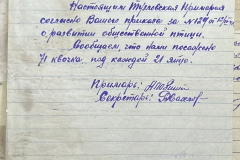 Настоящим Тырловская Примария
согласно Вашего приказа за №129 от
о развитии общественной птицы.
Сообщаем, что нами посажено
71 квочка, под каждой 21 яйцо.
Примарь:
Секретарь: